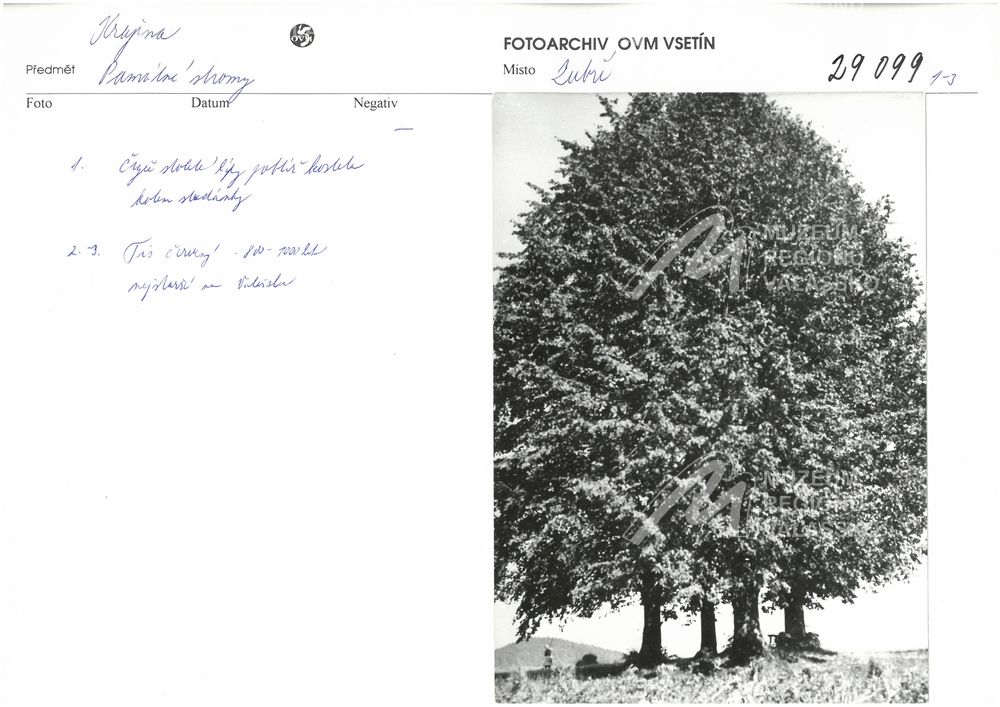 Krajina
FOTOARCHIV OVM VSETÍN
Předmět Památné stromy
Místo Zubří
29 099 1-3
Foto Datum Negativ
—
1. Čtyři stoleté lípy poblíž kostela
kolem studánky
2.-3. Tis červený - 800-1000 let
nejstarší na Valašsku
MUZEUM
REGIONU
VALAŠSKO
MUZEUM
REGIONU
VALAŠSKO